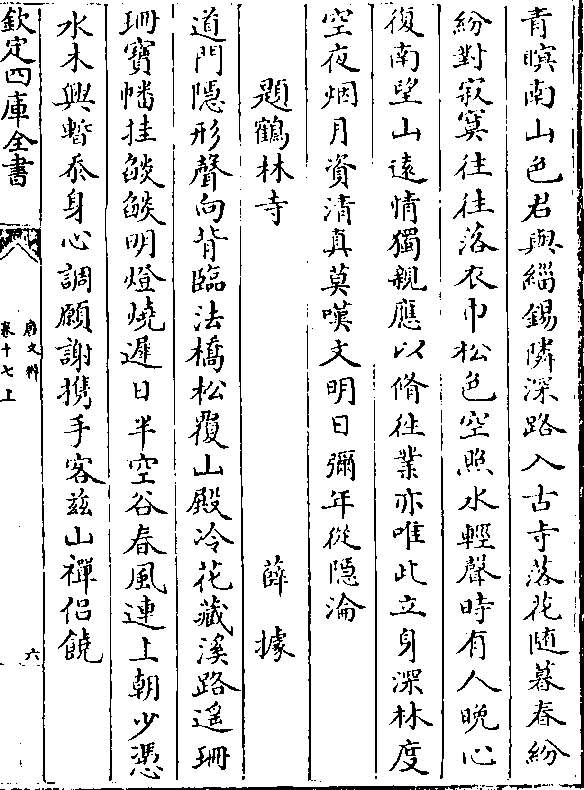 青暝南山色君與緇錫隣深路入古寺落花随暮春紛
紛對寂寞往往落衣巾松色空照水輕聲時有人晚心
復南望山遠情獨親應以脩往業亦唯此立身深林度
空夜烟月資清真莫嘆文明日彌年從隠淪
題鶴林寺 薛據
道門隠形聲向背臨法橋松覆山殿冷花藏溪路遥珊
珊寶幡挂燄燄明燈燒遲日半空谷春風連上朝少憑
水木興暫忝身心調願謝携手客兹山禪侣饒
欽定四庫全書
唐文粹
卷十七上
六